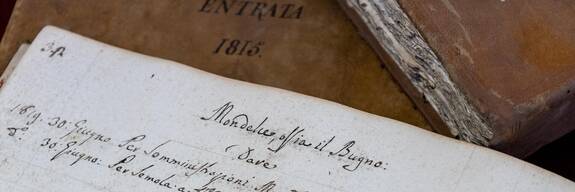 ENTRATA
1815.
342
Mondelce ossia il Bugno:
Dare
1819. 30: Giugno Per Somministrazioni
do. 30. Giugno: Per Semola: a